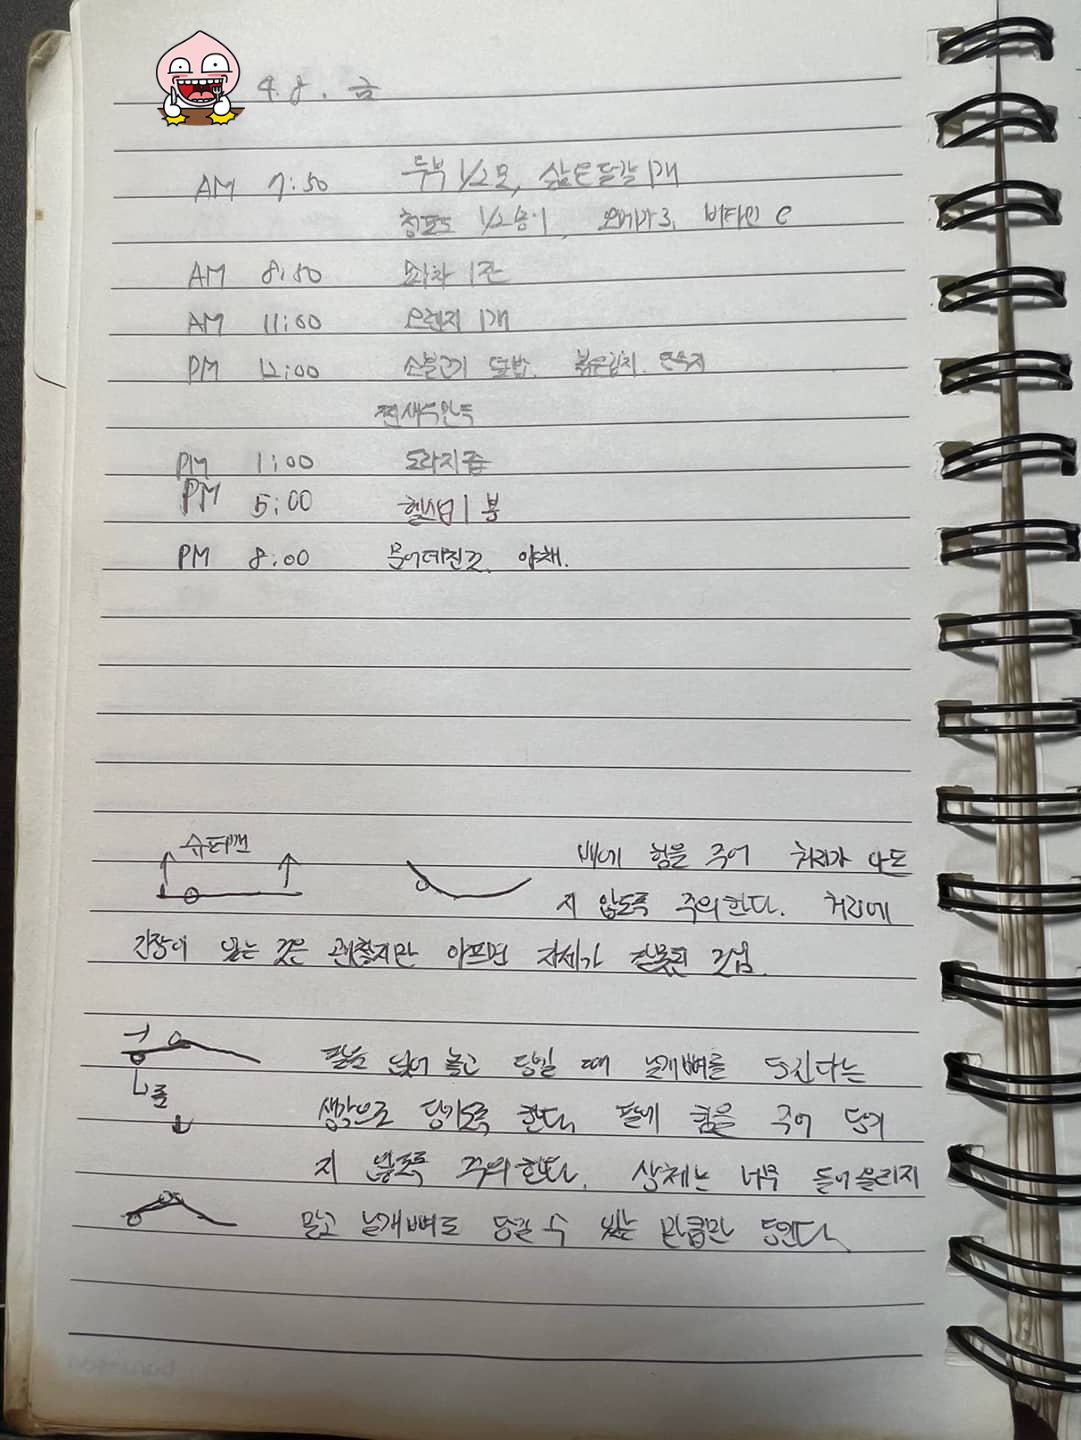 4.8. 금
AM 7:50 두부 1/2모, 삶은달걀 1개
청포도 1/2송이, 오메가3, 비타민 C
AM 8:50 모과차 1잔
AM 11:00 오렌지 1개
PM 12:00 소불고기 덮밥, 볶은김치, 단무지
찐새우만두
PM 1:00 도라지즙
PM 5:00 1봉
PM 8:00 야채.
슈퍼맨
배에 힘을 주어 허리가 아프
지 않도록 주의한다. 허리에
긴장이 있는 것은 괜찮지만 아프면 자세가 잘못된 것임.
팔을 놓고 당길 때 날개뼈를 다는
생각으로 당기도록 한다. 팔에 힘을 주어 당기
지 않도록 주의한다. 상체는 너무 들어올리지
말고 날개뼈로 당길 수 있는 만큼만 당긴다.